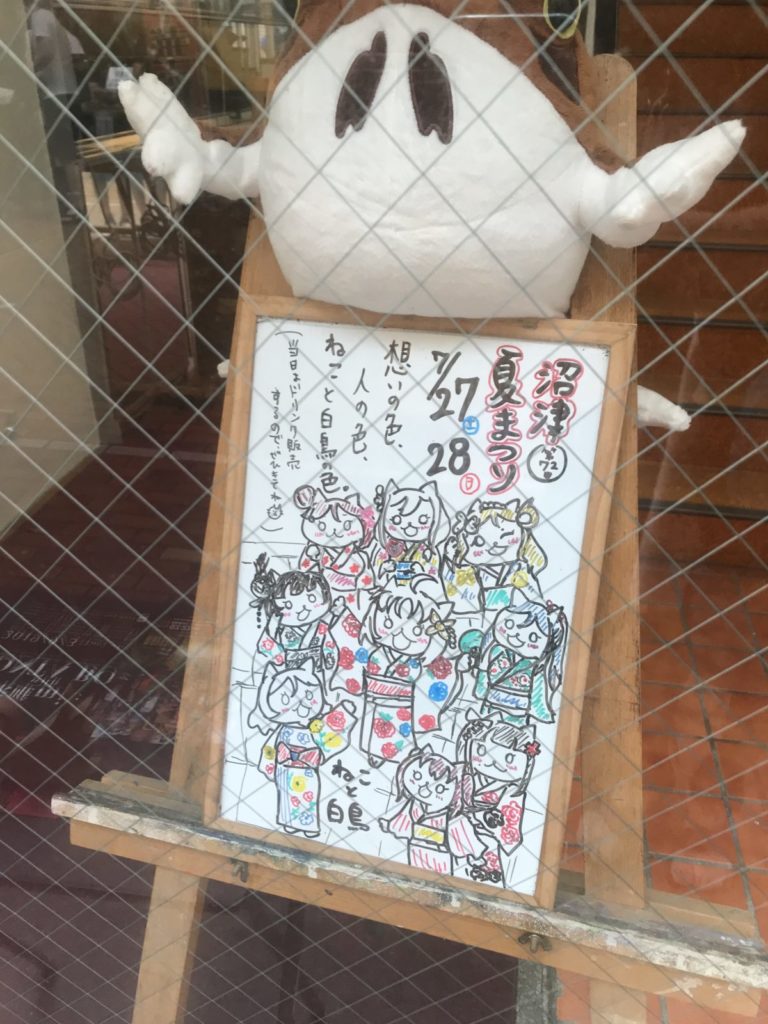 沼津
第72回
夏まつり
7/27土
28日
想いの色、
人の色、
ねこと白鳥の色。
(当日はドリンク販売
するので、ぜひきてね)
ねこ
と
白鳥